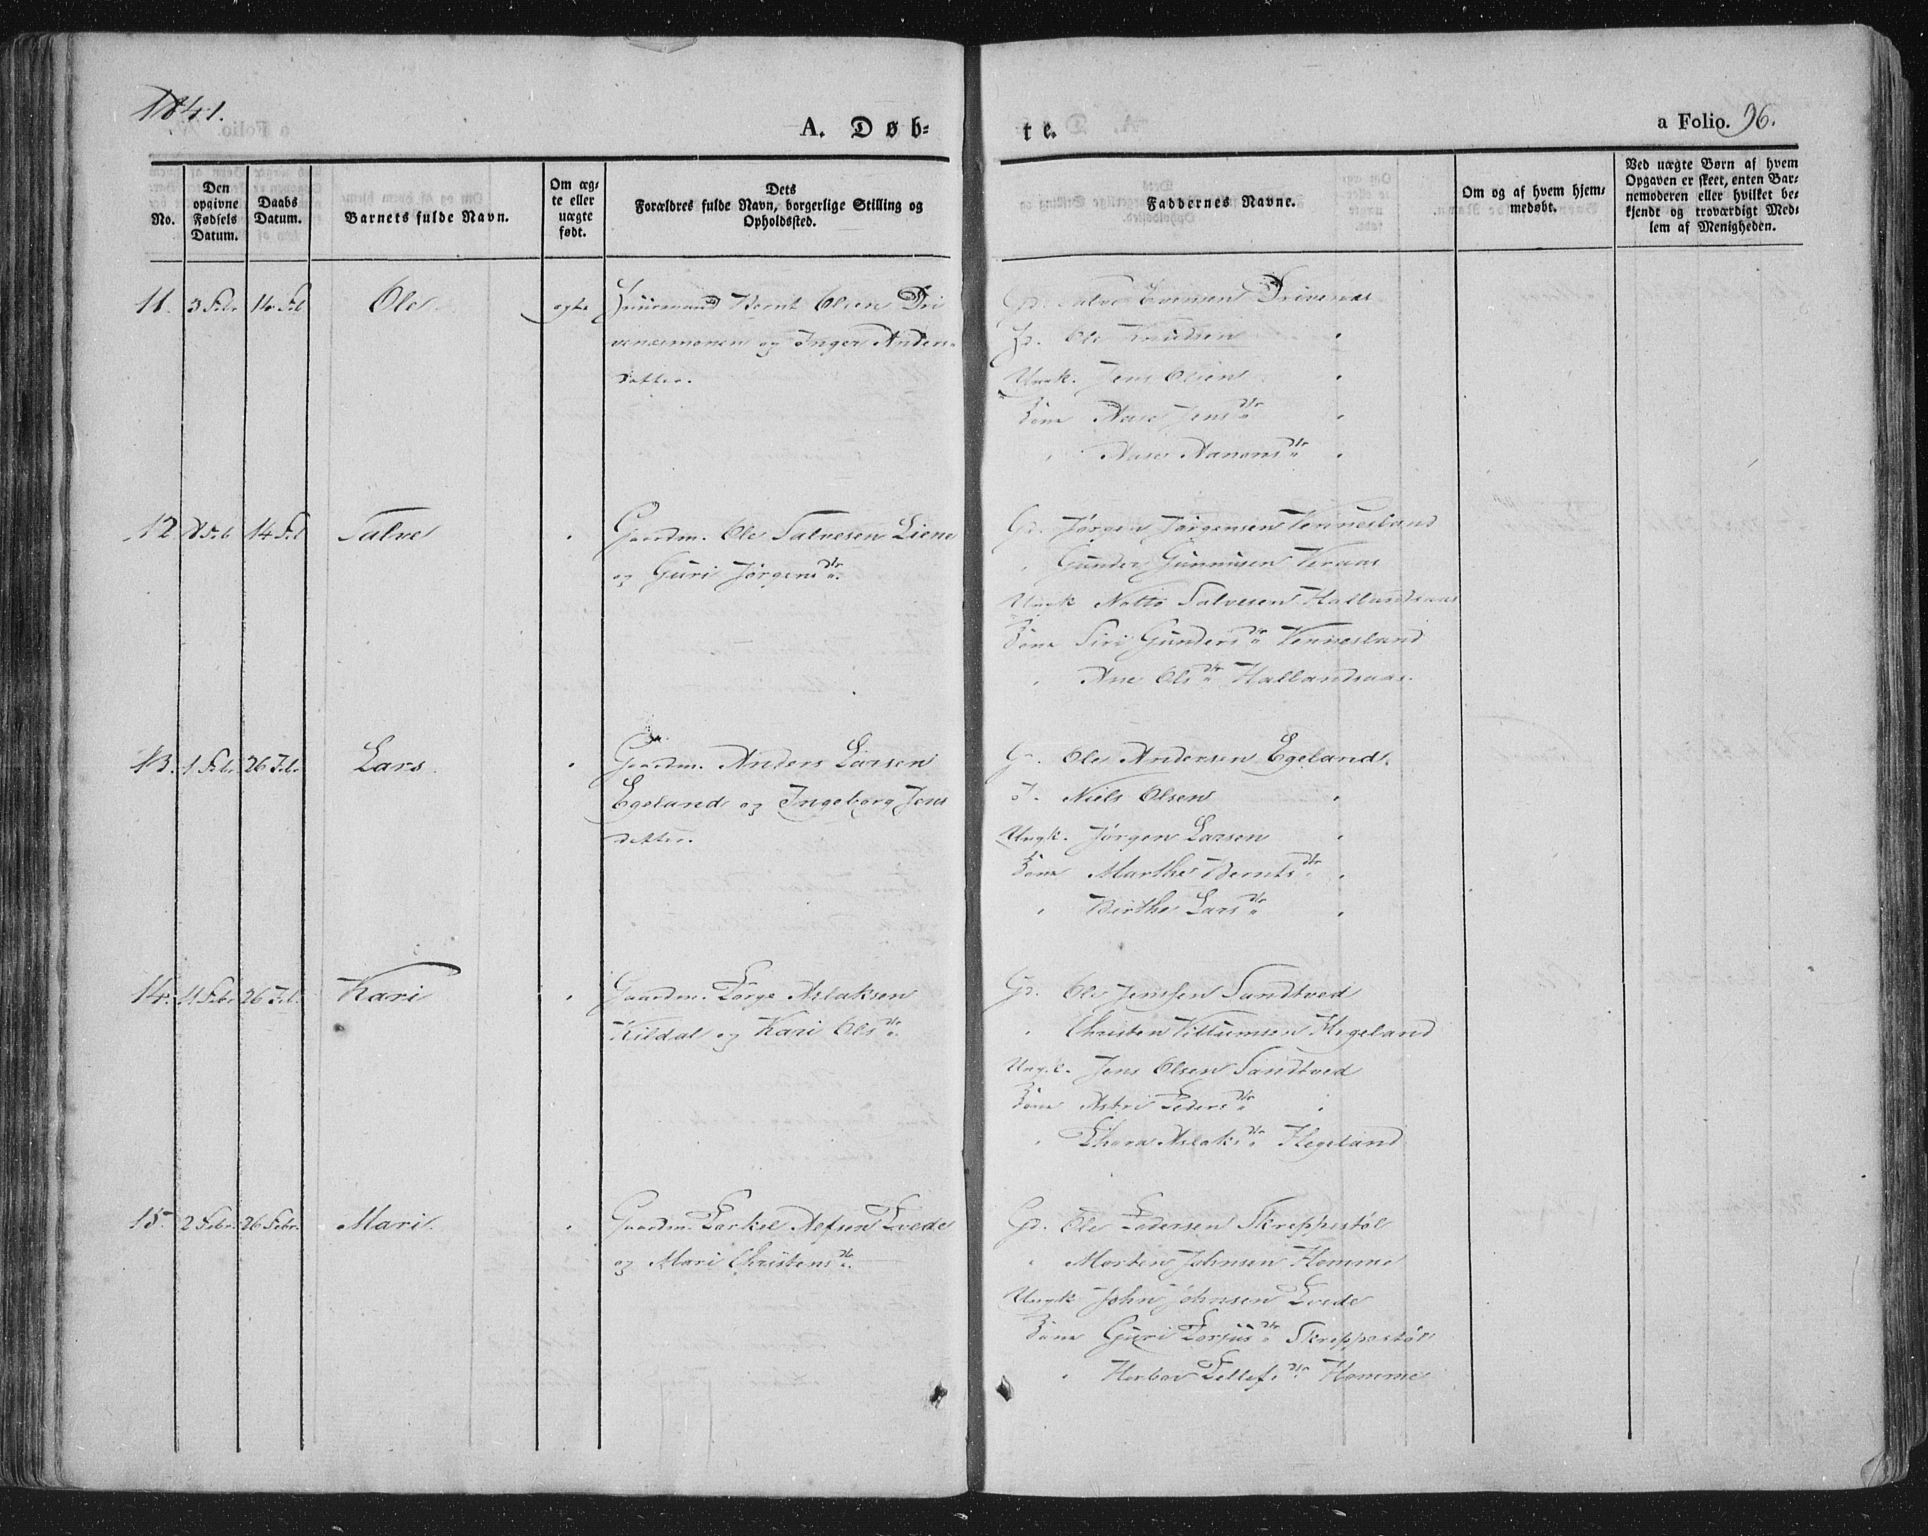 1841.
A. Døb-
te.
a Folio. 96.
No.
Den opgivne Fødsels Datum.
Daabs Datum.
Barnets fulde Navn.
Om æg-te eller uægte født.
Dets Forældres fulde Navn, borgerlige Stilling og Opholdssted.
Faddernes Navne.
Om og af hvem hjem-medøbt.
Ved uægte Børn af hvem Opgaven er skeet, enten Bar-nemoderen eller hvilket be-kjendt og troværdigt Med-lem af Menigheden.
11. 3 Febr 14 Feb Ole ægte Huusmand Bernt Olsen Dri
venæsmonen og Inger Anders-
datter.
Gd. Salve Evensen Drivenæs
Hd. Ole Knudsen "
Ungk. Jens Olsen "
Kone Aase Jensdtr "
" Aase Aanonsdtr "
12 Feb 14 Feb Salve " Gaardm. Ole Salvesen Liene
og Guri Jørgensdtr.
Gd. Jørgen Jørgensen Vennesland
" Gunder Gunnusen Veraas
Ungk Notto Salvesen Hallandsaas
Kone Siri Gundersdtr Vennesland
" Ane Olsdtr Hallandsaas.
13. 1 Febr 26 Febr Lars " Gaardm. Anders Larsen
Egeland og Ingeborg Jens
datter.
G. Ole Andersen Egeland.
Niels Olsen "
Ungk. Jørgen Larsen "
Kone Marthe Berntsdtr "
" Birthe Larsdtr "
14. 4 Febr 26 Feb. Kari " Gaardm. Tørge Aslaksen
Kildal og Kari Olsdtr.
Gd. Ole Jenssen Sandtved
" Christen Villumsen Hegeland
Ungk. Jens Olsen Sandtved
Kone Astri Pedersdtr "
" Thora Aslaksdtr Hegeland
15. 2 Febr. 26 Febr. Mari. " Gaardm. Torkel Aefsen Tvede
og Mari Christensdtr.
Gd. Ole Pedersen Skreppestøl
" Morten Johnsen Homme
Ungk John Johnsen Tvede
Kone Guri Torjusdtr Skreppestøl
" Herbor Tellefsdtr Homme